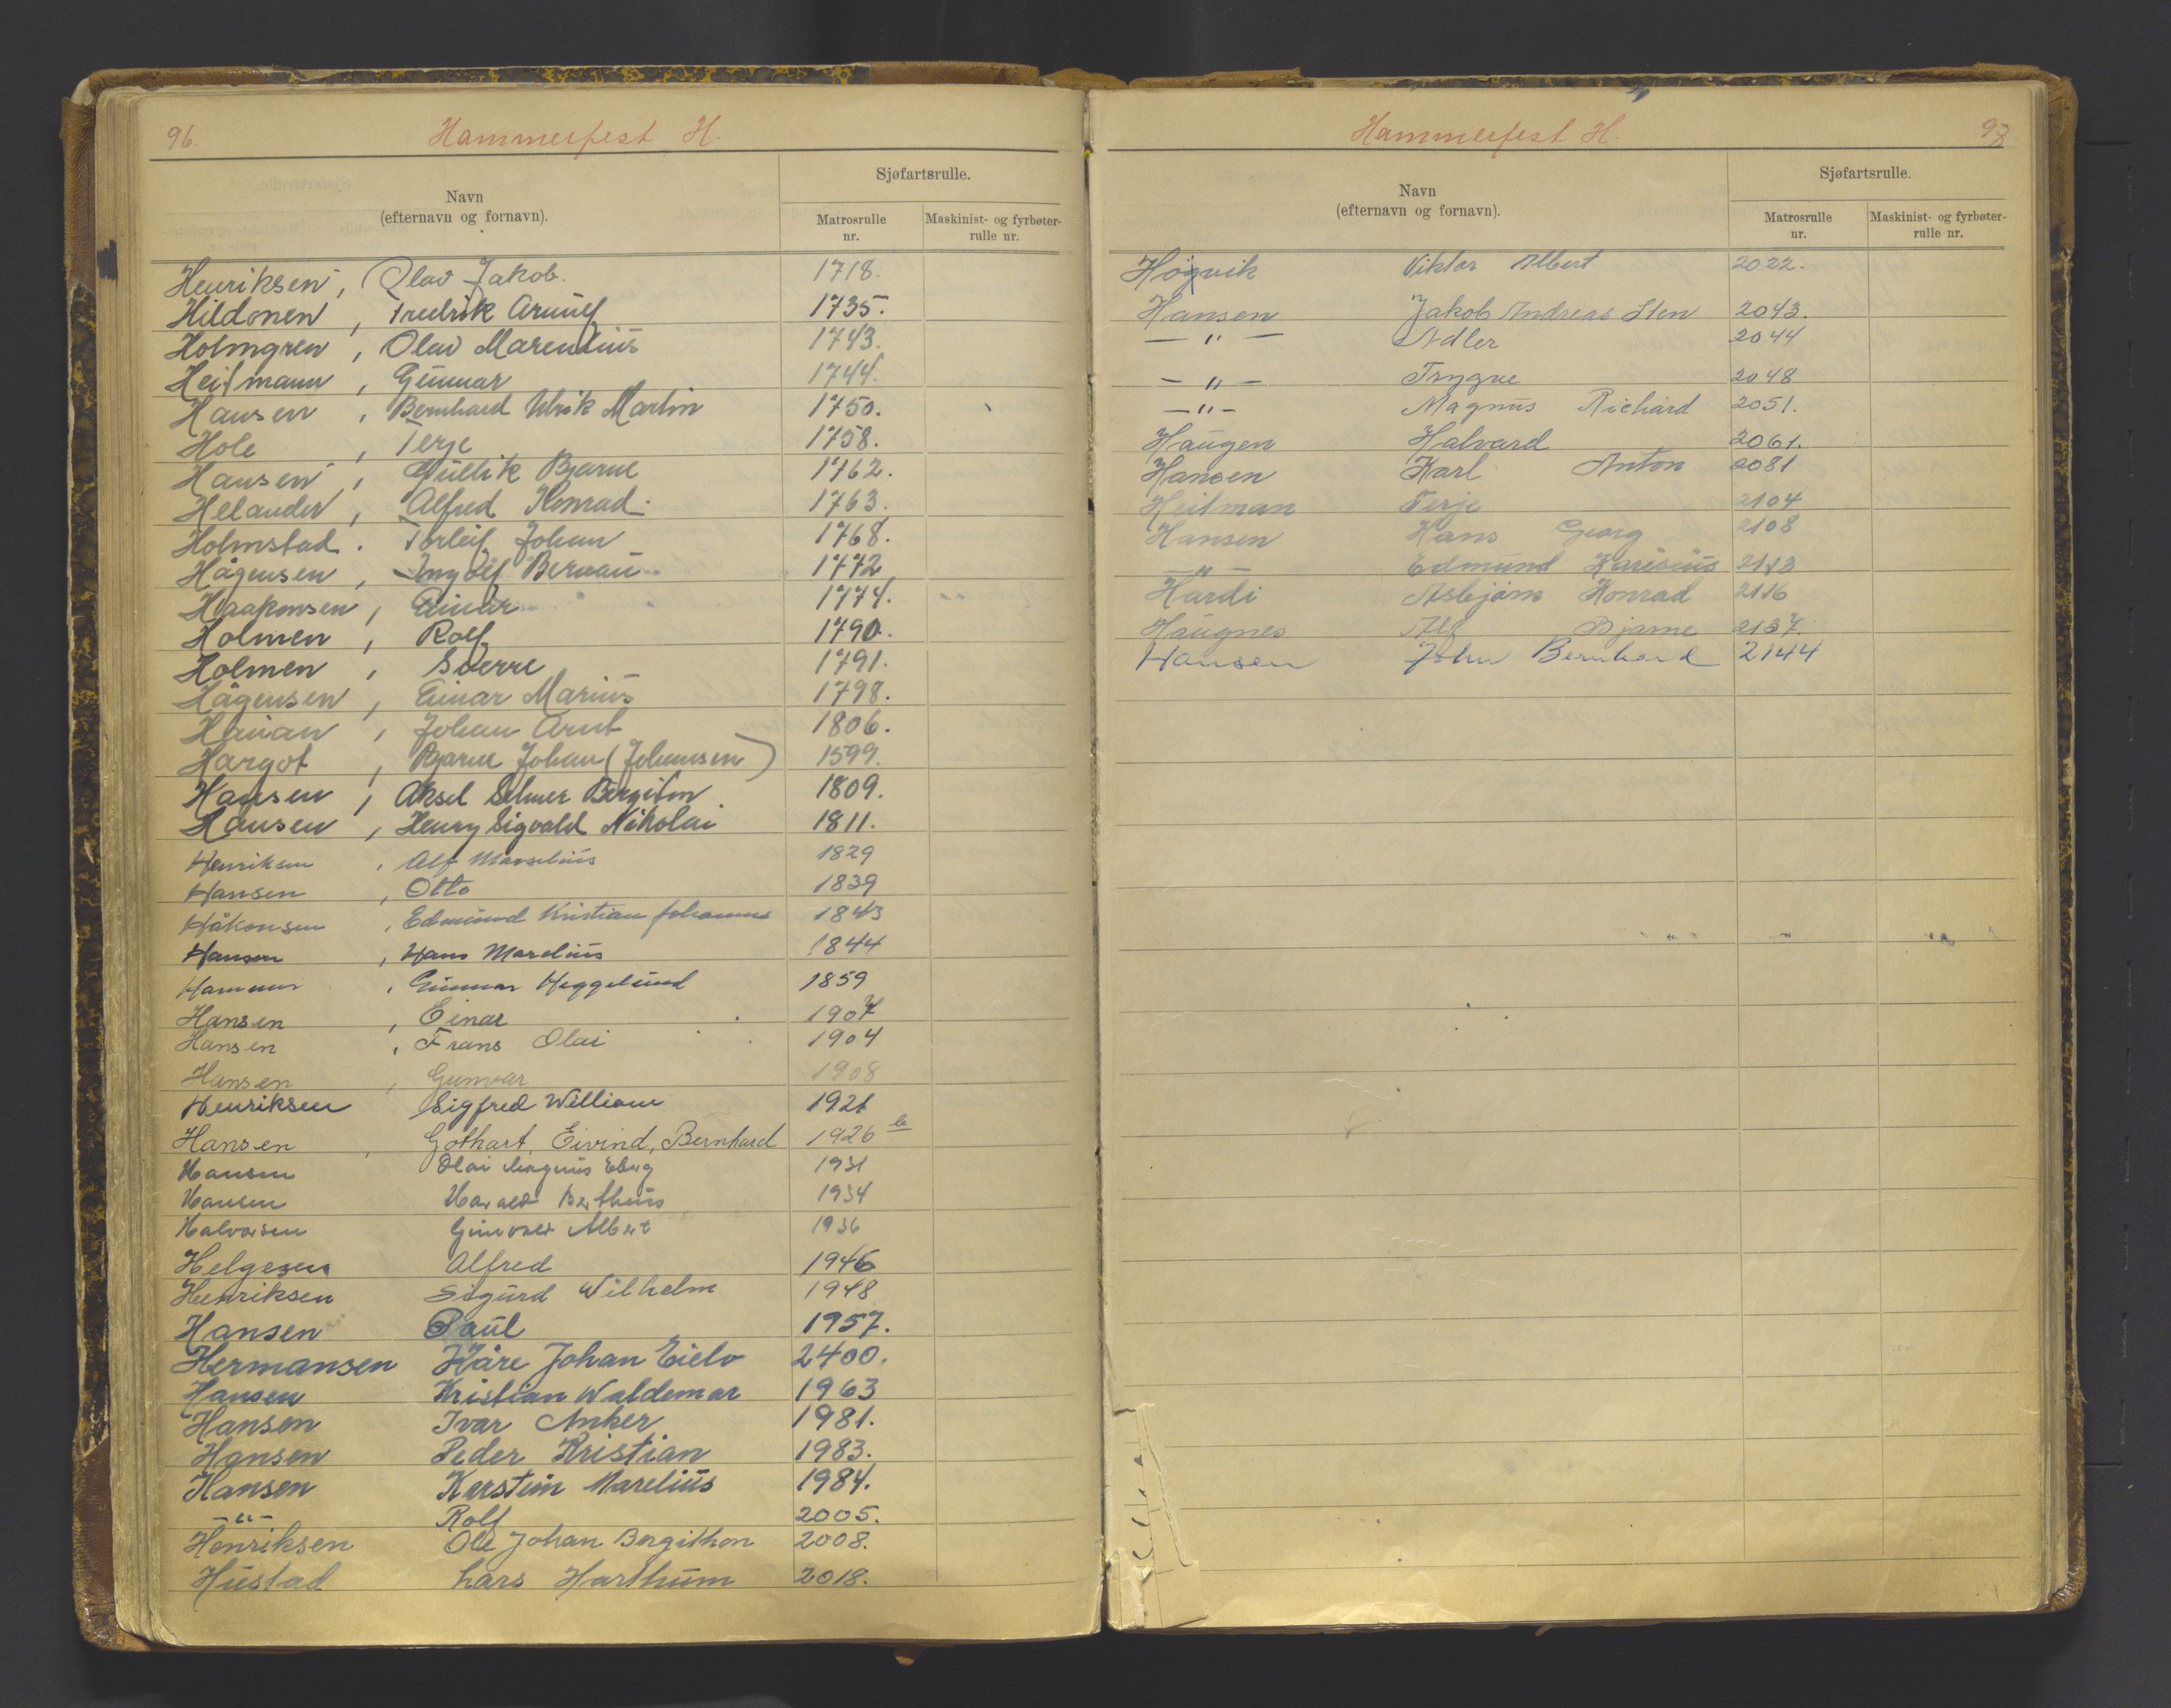 96.
Hammerfest H.
Navn
(efternavn og fornavn).
Sjøfartsrulle.
Matrosrulle
nr.
Maskinist- og fyrbøter-
rulle nr.
Henriksen, Olav Jakob. 1718.
Hildonen, Fredrik Arnulf 1735.
Holmgren, Olav Marentius 1743.
Heitmann, Gunnar 1744.
Hansen, Bernhard Ulrik Martin 1750.
Hole, Terje 1758.
Hansen, Gullik Bjarne 1762.
Helander, Alfred Konrad. 1763.
Holmstad. Torleif Johan 1768.
Hågensen, Ingolf Bernau 1772
Haakonsen, Einar 1774.
Holmen, Rolf 1790.
Holmen, Sverre 1791.
Hågensen, Einar Marius 1798.
Hauan, Johan Arnt 1806.
Hargot, Bjarne Johan (Johansen) 1599.
Hansen, Aksel Selmer Bergiton 1809.
Hansen, Henry Sigvald Nikolai 1811.
Henriksen, Alf Marselius 1829
Hansen, Otto 1839
Håkonsen, Edmund Kristian Johannes 1843
Hansen, Hans Marelius 1844
Hammer, Gunnar Heggelund 1859
Hansen, Einar
Hansen, Frans Olai 1904
Hansen, Gunvar 1908
Henriksen Sigfred William 1921
Hansen, Gothart, Eivind, Bernhard 1926 b
Hansen Olai Magnus 1931
Hansen Harald Bertheus 1934
Halvorsen Gunvald Albert 1936
Helgesen Alfred 1946
Henriksen Sigurd Wilhelm 1948
Hansen Paul 1957.
Hermansen Kåre Johan Eielv 2400.
Hansen Kristian Waldemar 1963
Hansen Ivar Anker 1981.
Hansen Peder Kristian 1983.
Hansen Karstein Marelius 1984.
—"— Rolf 2005.
Henriksen Ole Johan Bergithon 2008.
Hustad Lars Harthum 2018.
Hammerfest H.
97
Navn
(efternavn og fornavn).
Sjøfartsrulle.
Matrosrulle
nr.
Maskinist- og fyrbøter-
rulle nr.
Høgvik Viktor Albert 2022.
Hansen Jakob Andreas Sten 2043.
—"— Adler 2044
—"— Trygve 2048
—"— Magnus Richard 2051.
Haugen Halvard 2061.
Hansen Karl Anton 2081
Heitman Terje 2104
Hansen Hans Georg 2108
—"— Edmund Karisius 2113
Hardi Asbjørn Konrad 2116
Haugnes Alf Bjarne 2137.
Hansen John Bernhard 2144